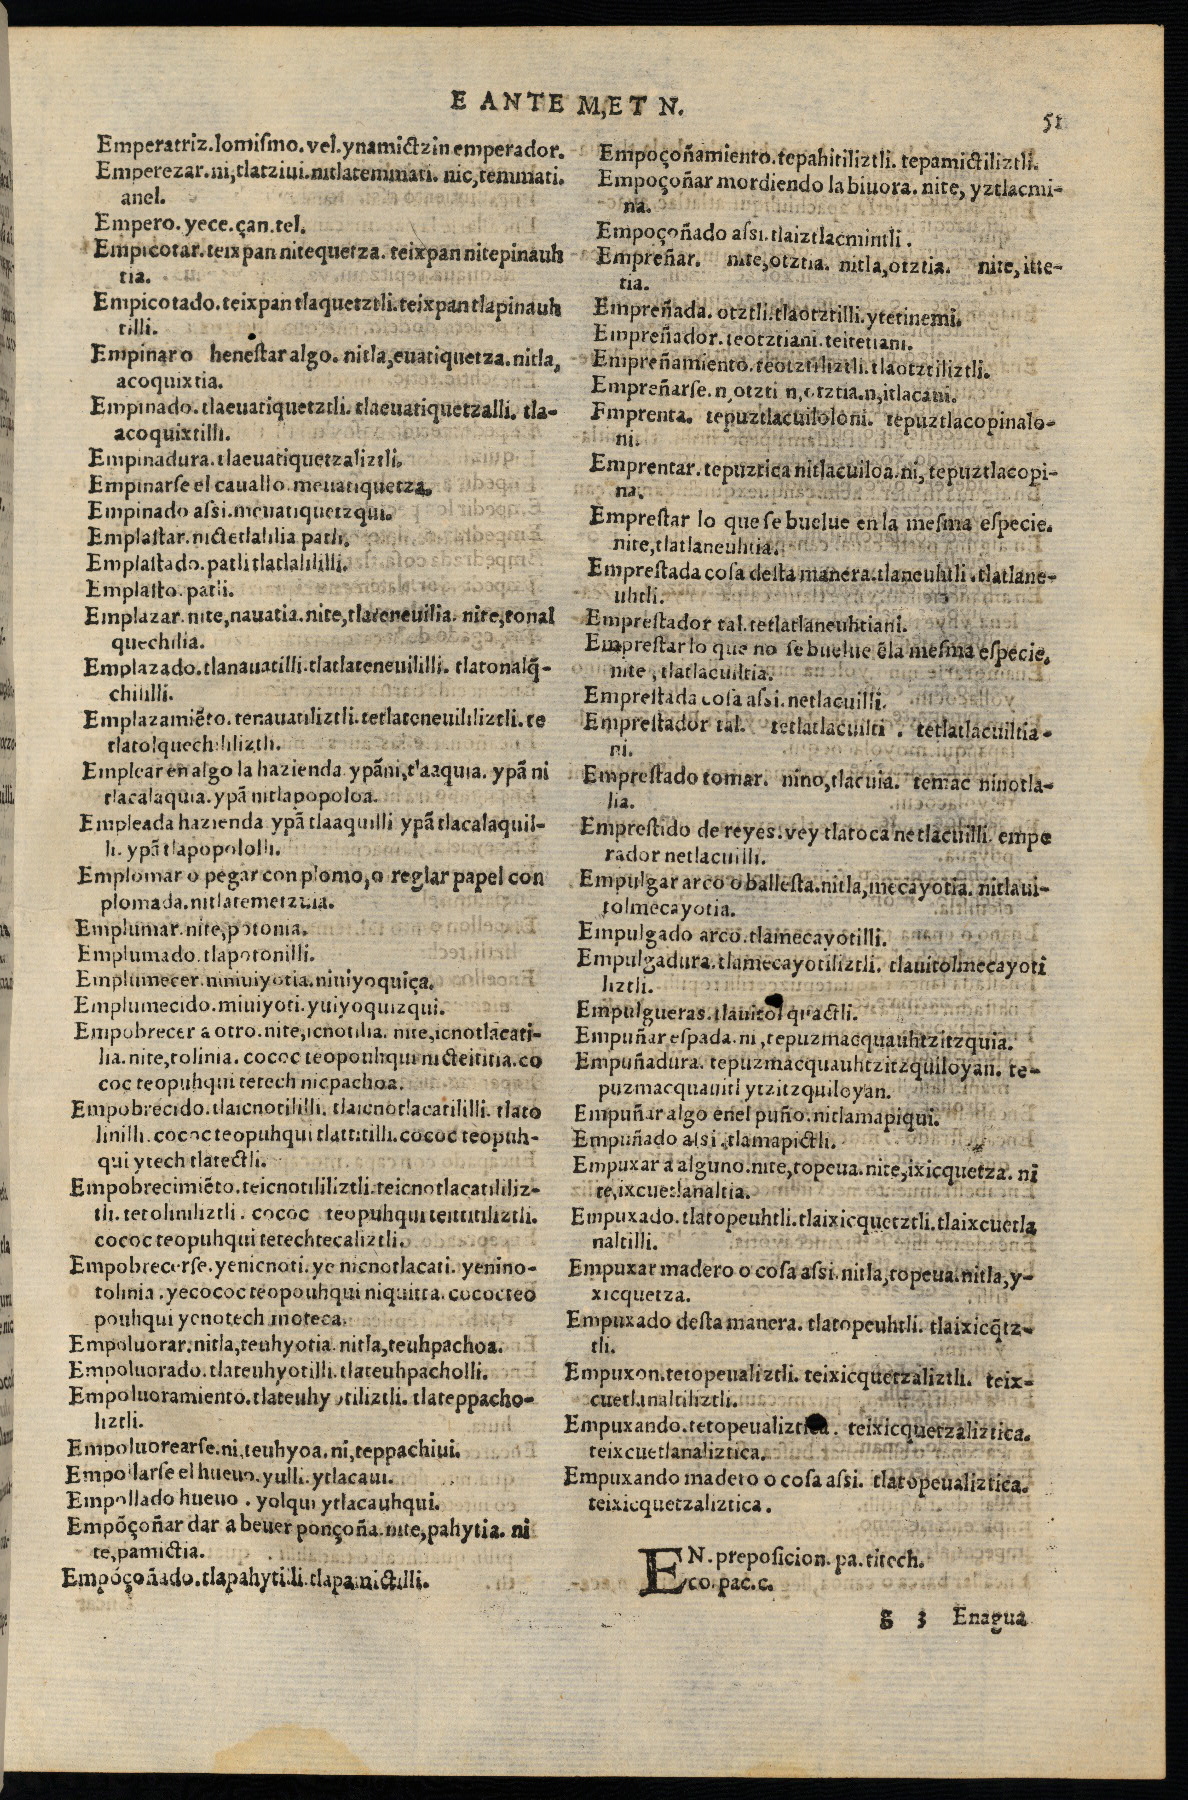 E ANTE M, ET N.
51
Emperatriz. lo mismo. vel. ynamictzin emperador.
Emperezar. ni, tlatziui. nitlatemmati. nic, temmati.
anel.
Empero. yece. çan. tel.
Empicotar. teixpan nitequetza. teixpan nitepinauh
tia.
Empicotado. teixpan tlaquetztli. teixpan tlapinauh
tilli.
Empinar o henestar algo. nitla, euatiquetza. nitla,
acoquixtia.
Empinado. tlaeuatiquetztli. tlaeuatiquetzalli. tla-
acoquixtilli.
Empinadura. tlaeuatiquetzaliztli.
Empinarse el cauallo. meuatiquetza.
Empinado assi. meuatiquetzqui.
Emplastar. nictetlalilia patli.
Emplastado. patli tlatlalililli.
Emplasto. patli.
Emplazar. nite, nauatia. nite, tlateneuilia. nite, tonal
quechilia.
Emplazado. tlanauatilli. tlatlateneuililli. tlatonalq̃-
chililli.
Emplazamiẽto. tenauatiliztli. tetlateneuililiztli. te
tlatolquechililiztli.
Emplear en algo la hazienda ypãni, tlaaquia. ypã ni
tlacalaquia. ypã nitlapopoloa.
Empleada hazienda ypã tlaaquilli ypã tlacalaquil-
li. ypã tlapopololli.
Emplomar o pegar con plomo, o reglar papel con
plomada. nitlatemetzuia.
Emplumar. nite, potonia.
Emplumado. tlapotonilli.
Emplumecer. nimiuiyotia. niuiyoquiça.
Emplumecido. miuiyoti. yuiyoquizqui.
Empobrecer a otro. nite, icnotilia. nite, icnotlacati-
lia. nite, tolinia. cococ teopouhqui nicteititia. co
coc teopuhqui tetech nicpachoa.
Empobrecido. tlaicnotililli. tlaicnotlacatililli. tlato
linilli. cococ teopuhqui tlattitilli. cococ teopuh-
qui ytech tlatectli.
Empobrecimiẽto. teicnotililiztli. teicnotlacatililiz-
tli. tetoliniliztli. cococ teopuhqui teittitiliztli.
cococ teopuhqui tetechtecaliztli.
Empobrecerse. ye nicnoti. ye nicnotlacati. ye nino-
tolinia. ye cococ teopouhqui niquitta. cococ teo
pouhqui ye notech moteca.
Empoluorar. nitla, teuhyotia. nitla, teuhpachoa.
Empoluorado. tlateuhyotilli. tlateuhpacholli.
Empoluoramiento. tlateuhyotiliztli. tlateppacho-
liztli.
Empoluorearse. ni, teuhyoa. ni, teppachiui.
Empollarse el hueuo. yulli. ytlacaui.
Empollado hueuo. yolqui ytlacauhqui.
Empõçoñar dar a beuer ponçoña. nite, pahytia. ni
te, pamictia.
Empóçoñado. tlapahytilli. tlapamictilli.
Empoçoñamiento. tepahitiliztli. tepamictiliztli.
Empoçoñar mordiendo la biuora. nite, yztlacmi-
na.
Empoçoñado assi. tlaiztlacmintli.
Empreñar. nite, otztia. nitla, otztia. nite, itte-
tia.
Empreñada. otztli. tlaotztilli. ytetinemi.
Empreñador. teotztiani. teitetiani.
Empreñamiento. teotztiliztli. tlaotztiliztli.
Empreñarse. n, otzti n, otztia. n, itlacani.
Emprenta. tepuztlacuiloloni. tepuztlacopinalo-
ni.
Emprentar. tepuztica nitlacuiloa. ni, tepuztlacopi-
na.
Emprestar lo que se buelue en la mesma especie.
nite, tlatlaneuhtia.
Emprestada cosa desta manera. tlaneuhtli. tlatlane-
uhtli.
Emprestador tal. tetlatlaneuhtiani.
Emprestar lo que no se buelue ẽla mesma especie.
nite, tlatlacuiltia.
Emprestada cosa assi. netlacuilli.
Emprestador tal. tetlatlacuilti. tetlatlacuiltia-
ni.
Emprestado tomar. nino, tlacuia. temac ninotla-
lia.
Emprestido de reyes. vey tlatoca netlacuilli. empe
rador netlacuilli.
Empulgar arco o ballesta. nitla, mecayotia. nitlaui-
tolmecayotia.
Empulgado arco. tlamecayotilli.
Empulgadura. tlamecayotiliztli. tlauitolmecayoti
liztli.
Empulgueras. tlauitol quactli.
Empuñar espada. ni, tepuzmacquauhtzitzquia.
Empuñadura. tepuzmacquauhtzitzquiloyan. te-
puzmacquauitl ytzitzquiloyan.
Empuñar algo enel puño. nitlamapiqui.
Empuñado assi. tlamapictli.
Empuxar a alguno. nite, topeua. nite, ixicquetza. ni
te, ixcuetlanaltia.
Empuxado. tlatopeuhtli. tlaixicquetztli. tlaixcuetla
naltilli.
Empuxar madero o cosa assi. nitla, topeua. nitla, y-
xicquetza.
Empuxado desta manera. tlatopeuhtli. tlaixicq̃tz-
tli.
Empuxon. tetopeualiztli. teixicquetzaliztli. teix-
cuetlanaltiliztli.
Empuxando. tetopeualiztica. teixicquetzaliztica.
teixcuetlanaliztica.
Empuxando madero o cosa assi. tlatopeualiztica.
teixicquetzaliztica.
EN. preposicion. pa. titech.
co. pac. c.
g 3 Enagua